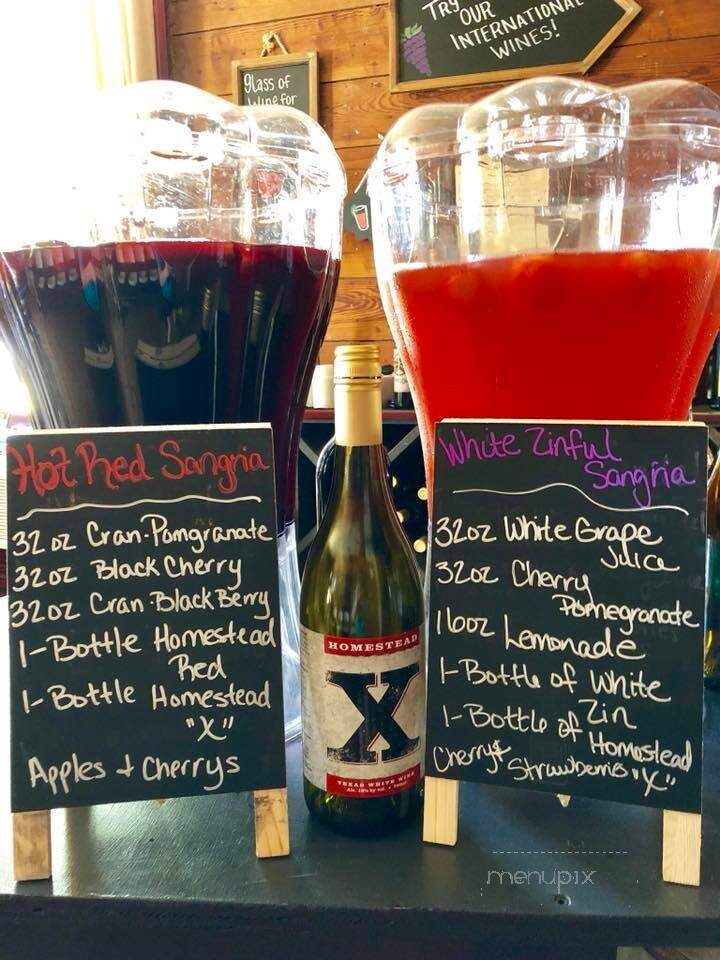 TRY
OUR
INTERNATIONAL
WINES!
glass of
Wine for
Hot Red Sangria
32 oz Cran-Pomgranate
32 oz Black Cherry
32 oz Cran-Black Berry
1-Bottle Homestead
Red
1-Bottle Homestead
"X"
Apples & Cherrys
HOMESTEAD
X
TEXAS WHITE WINE
White Zinful
Sangria
32oz White Grape
Juice
32oz Cherry
Pomegranate
16oz Lemonade
1-Bottle of White
Zin
1-Bottle of Homestead
"X"
Cherrys &
Strawberries
menupix